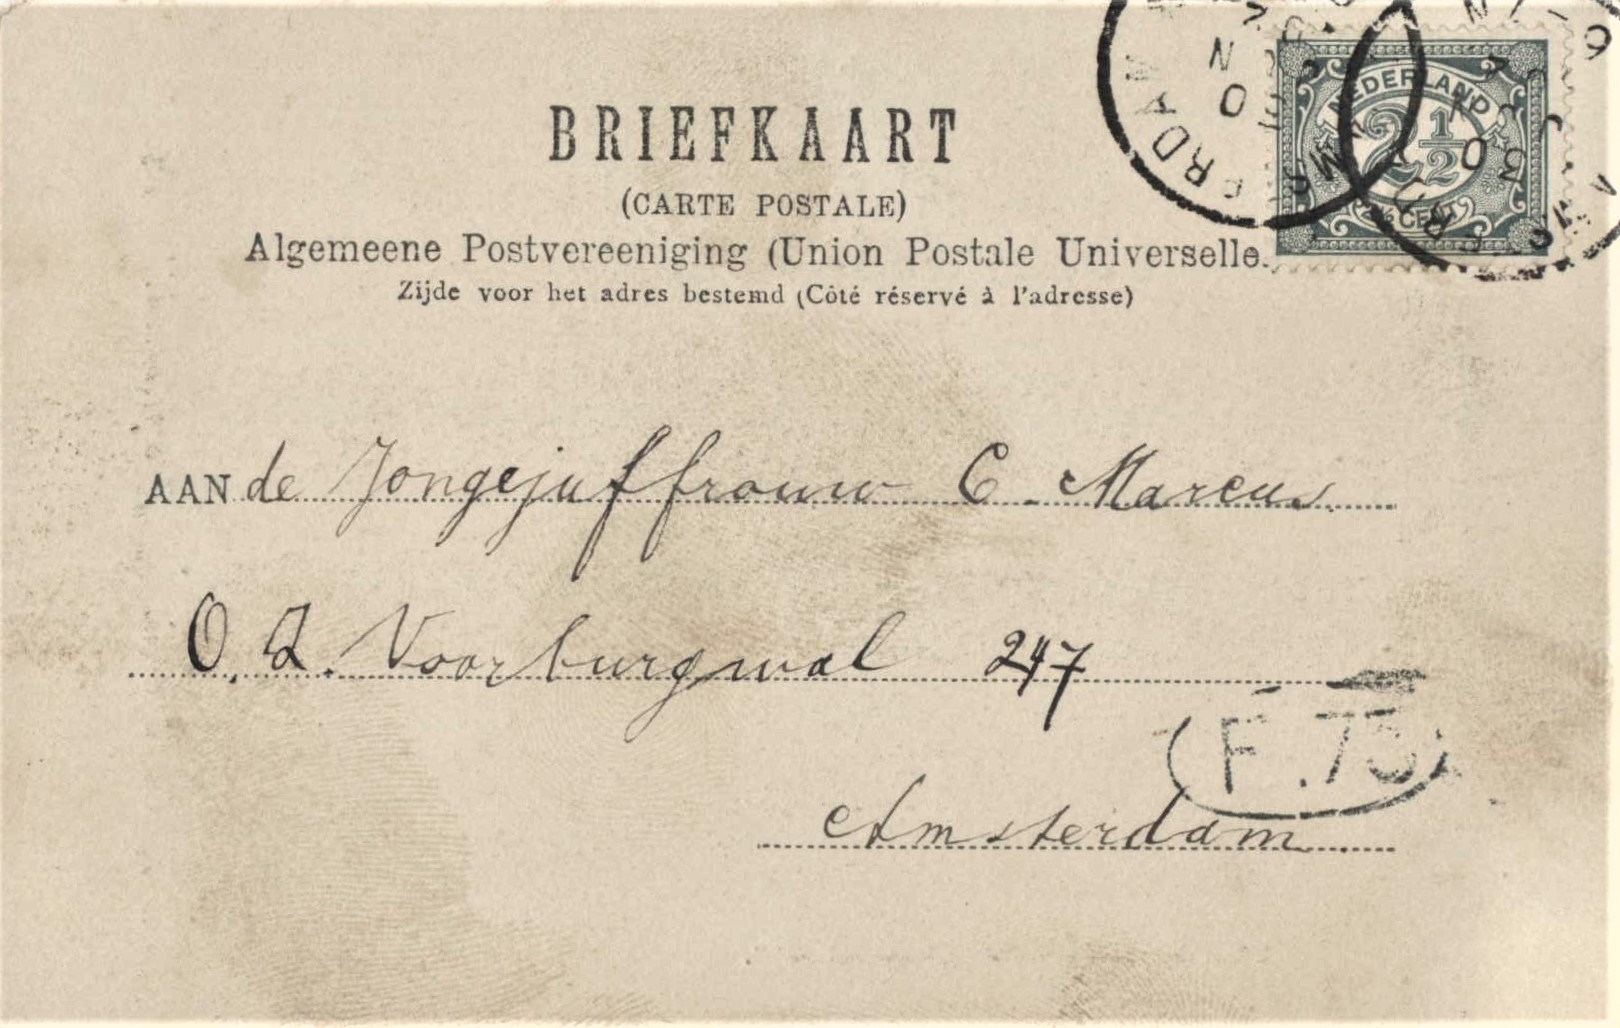 BRIEFKAART
(CARTE POSTALE)
Algemeene Postvereeniging (Union Postale Universelle.
Zijde voor het adres bestemd (Côté réservé à l'adresse)
NEDERLAND
2 1/2
2½ CENT
AAN de Jongejuffrouw C. Marcus
O. Z. Voorburgwal 247
F.75
Amsterdam